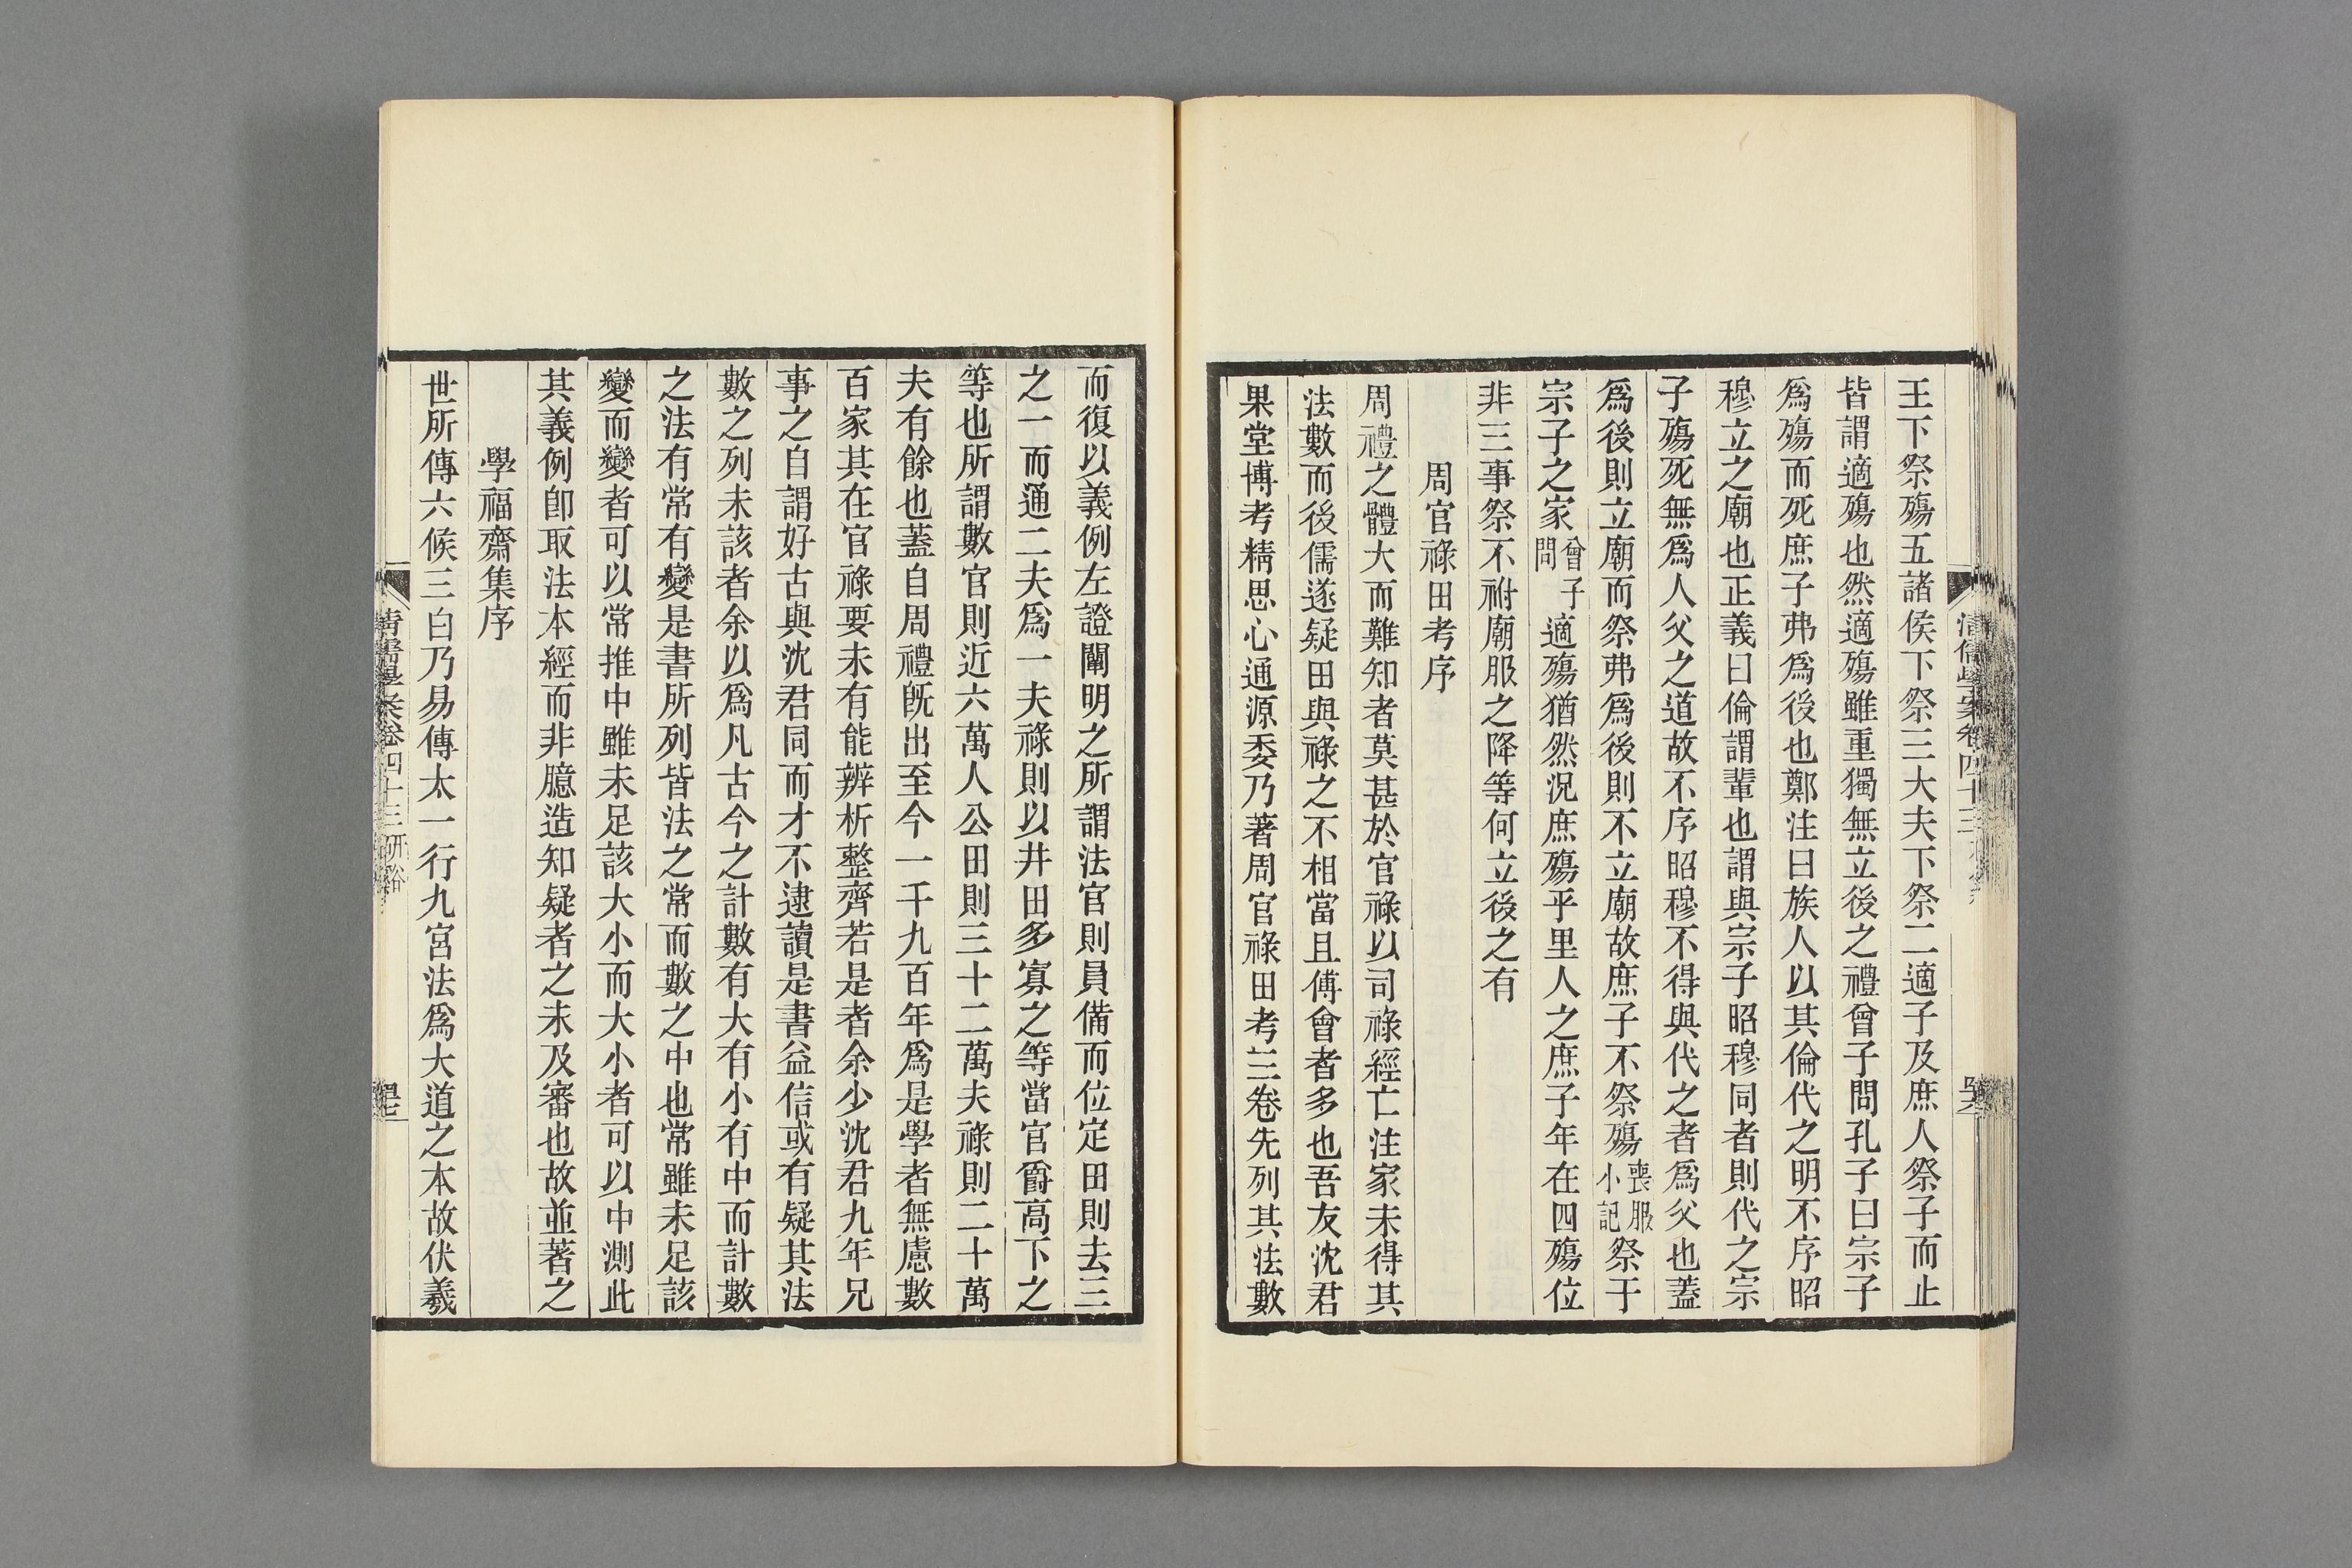 王下祭殤五諸侯下祭三大夫下祭二適子及庶人祭子而止
皆謂適殤也然適殤雖重獨無立後之禮曾子問孔子曰宗子
爲殤而死庶子弗爲後也鄭注曰族人以其倫代之明不序昭
穆立之廟也正義曰倫謂輩也謂與宗子昭穆同者則代之宗
子殤死無爲人父之道故不序昭穆不得與代之者爲父也蓋
爲後則立廟而祭弗爲後則不立廟故庶子不祭殤喪服小記祭于
宗子之家曾子問適殤猶然況庶殤乎里人之庶子年在四殤位
非三事祭不祔廟服之降等何立後之有
周官祿田考序
周禮之體大而難知者莫甚於官祿以司祿經亡注家未得其
法數而後儒遂疑田與祿之不相當且傅會者多也吾友沈君
果堂博考精思心通源委乃著周官祿田考三卷先列其法數
而復以義例左證闡明之所謂法官則員備而位定田則去三
之一而通二夫爲一夫祿則以井田多寡之等當官爵高下之
等也所謂數官則近六萬人公田則三十二萬夫祿則二十萬
夫有餘也蓋自周禮旣出至今一千九百年爲是學者無慮數
百家其在官祿要未有能辨析整齊若是者余少沈君九年兄
事之自謂好古與沈君同而才不逮讀是書益信或有疑其法
數之列未該者余以爲凡古今之計數有大有小有中而計數
之法有常有變是書所列皆法之常而數之中也常雖未足該
變而變者可以常推中雖未足該大小而大小者可以中測此
其義例卽取法本經而非臆造知疑者之未及審也故並著之
學福齋集序
世所傳六候三白乃易傳太一行九宮法爲大道之本故伏羲
清儒學案卷四十三 研谿